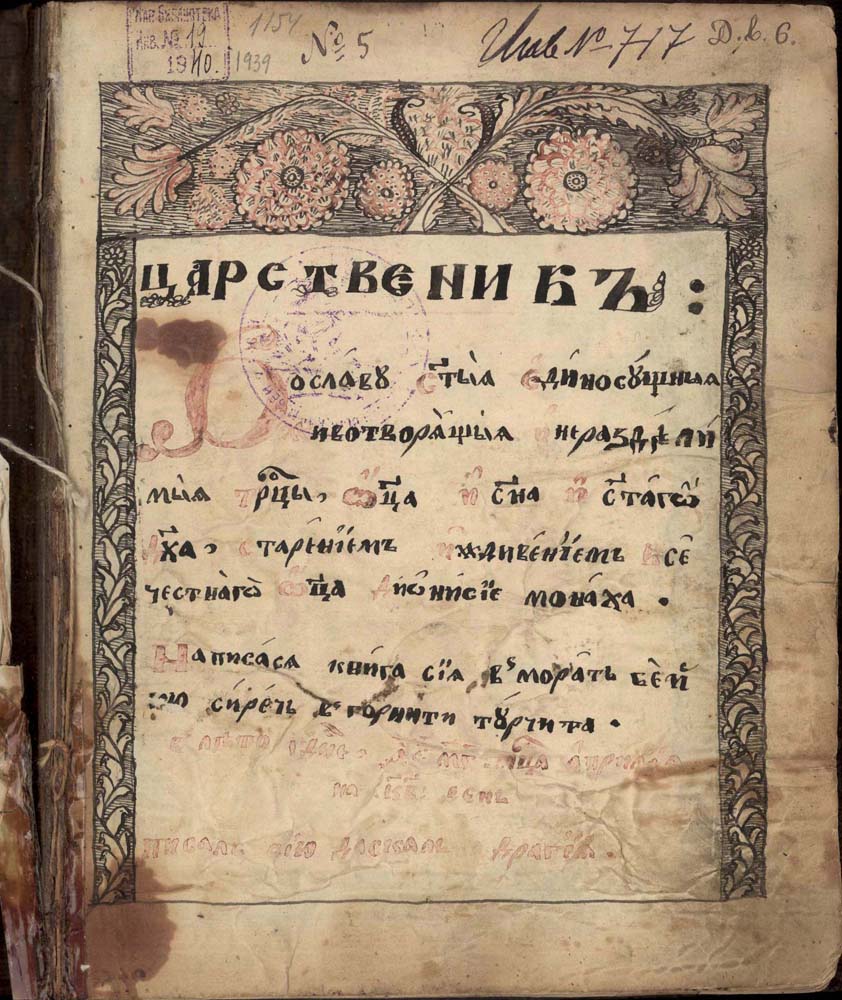 Нар. Библиотека
Инв. № 19
1940.
1154
1939
№ 5
Инв № 717
Д. Л. 6.
ЦАРСТВЕНИКЪ:
Дославу ст҃ыꙗ єди́носу́щныꙗ
животворѧ́щыꙗ и нераздѣли́
мыꙗ трⷪ҇цы, ѡ҆ц҃а и҆ сн҃а и҆ ст҃а́гѡ
дх҃а, старе́нїемъ и҆ иждиве́нїемъ все
че́стнагѡ ѡ҆ц҃а дїѡни́сїе мона́ха.
Написа́сѧ кни́га сїѧ в морать
си́речь в горнити ту́рчита.
в лѣто мц҃а априлїа
на к҃в день
писалъ сїю даскалъ драгїѧ.